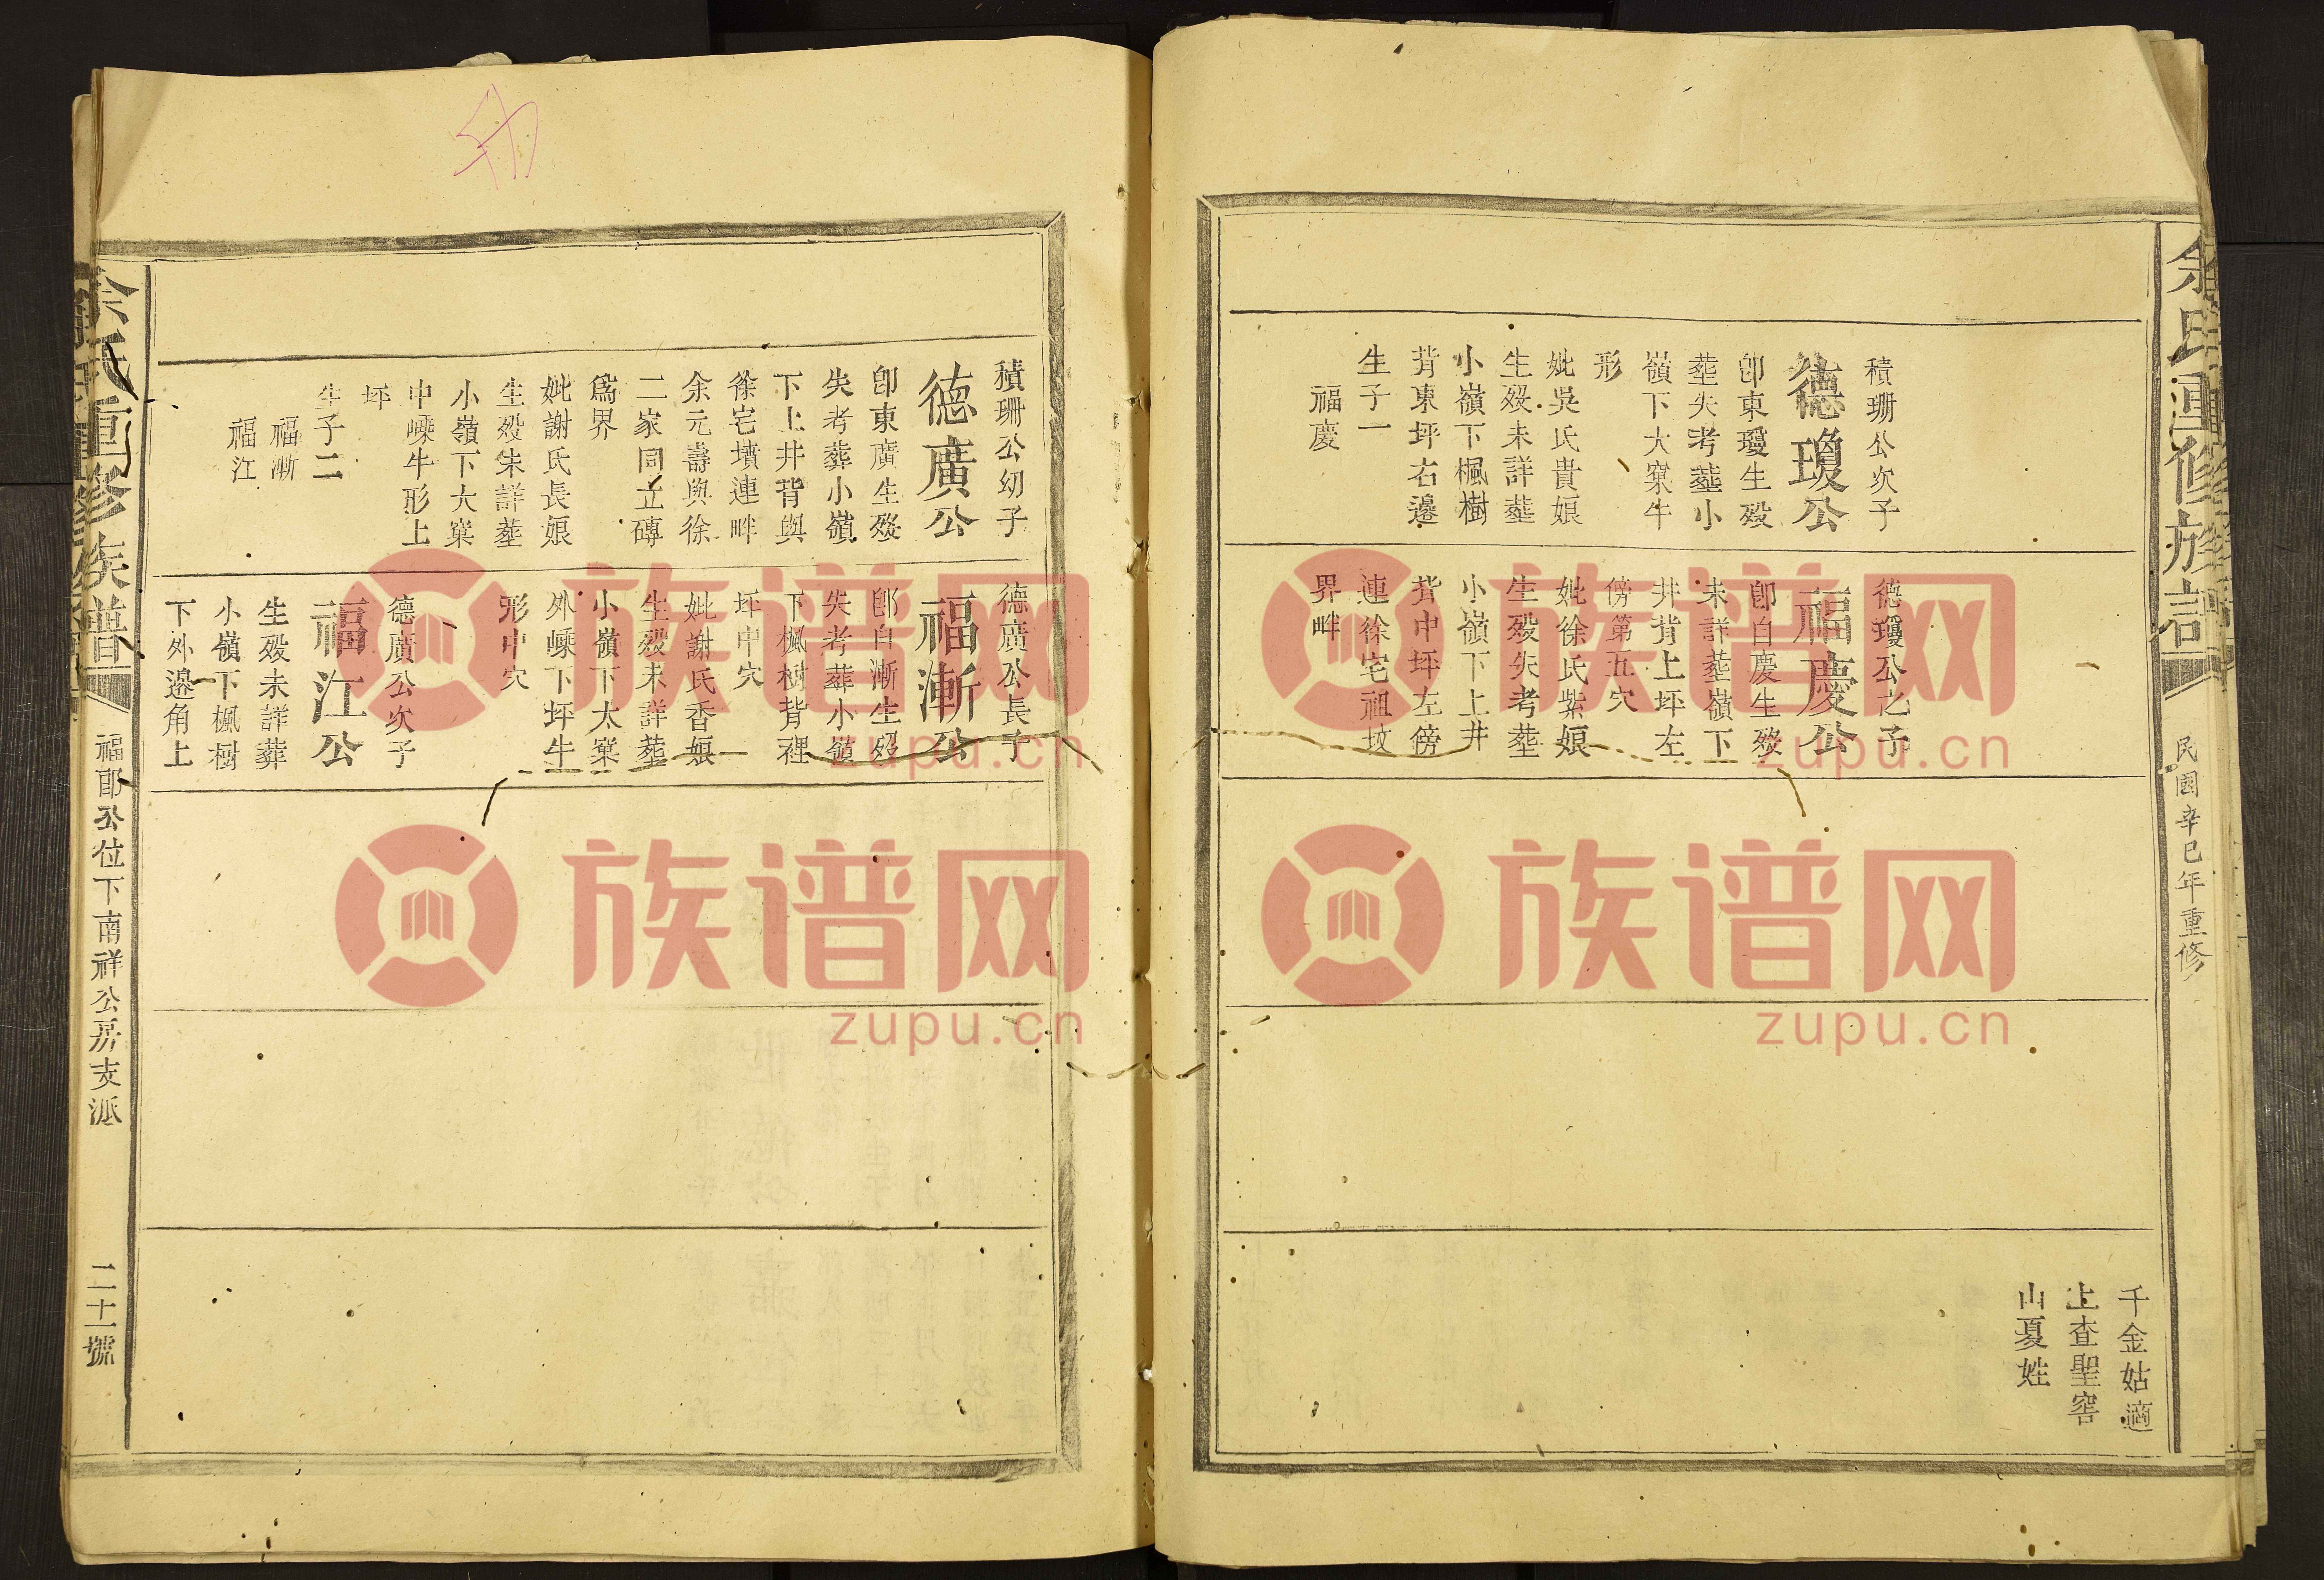 民國辛巳年重修
千金姑適
上查聖窖
山夏姓
積珊公次子
德瓊公
卽東瓊生殁
塟失考塟小
嶺下大窠牛
形
妣吳氏貴娘
生殁未詳塟
小嶺下楓樹
背東坪右邊
生子一
福慶
德瓊公之子
福慶公
卽白慶生殁
未詳塟嶺下
井背上坪左
傍第五穴
妣徐氏紫娘
生殁失考塟
小嶺下上井
背中坪左傍
連徐宅祖坟
界畔
積珊公幼子
德廣公
卽東廣生殁
失考葬小嶺
下上井背與
徐宅墳連畔
余元壽與徐
二家同立磚
爲界
妣謝氏長娘
生殁未詳塟
小嶺下大窠
中嵊牛形上
坪
生子二
福漸
福江
德廣公長子
福漸公
卽白漸生殁
失考葬小嶺
下楓樹背裡
坪中穴
妣謝氏香娘
生殁未詳塟
小嶺下太窠
外嵊下坪牛
形中穴
德廣公次子
福江公
生殁未詳葬
小嶺下楓樹
下外邊角上
余氏重修族譜
福郎公位下南祥公房支派
二十一號
族谱网
zupu.cn
族谱网
zupu.cn
族谱网
zupu.cn
族谱网
zupu.cn